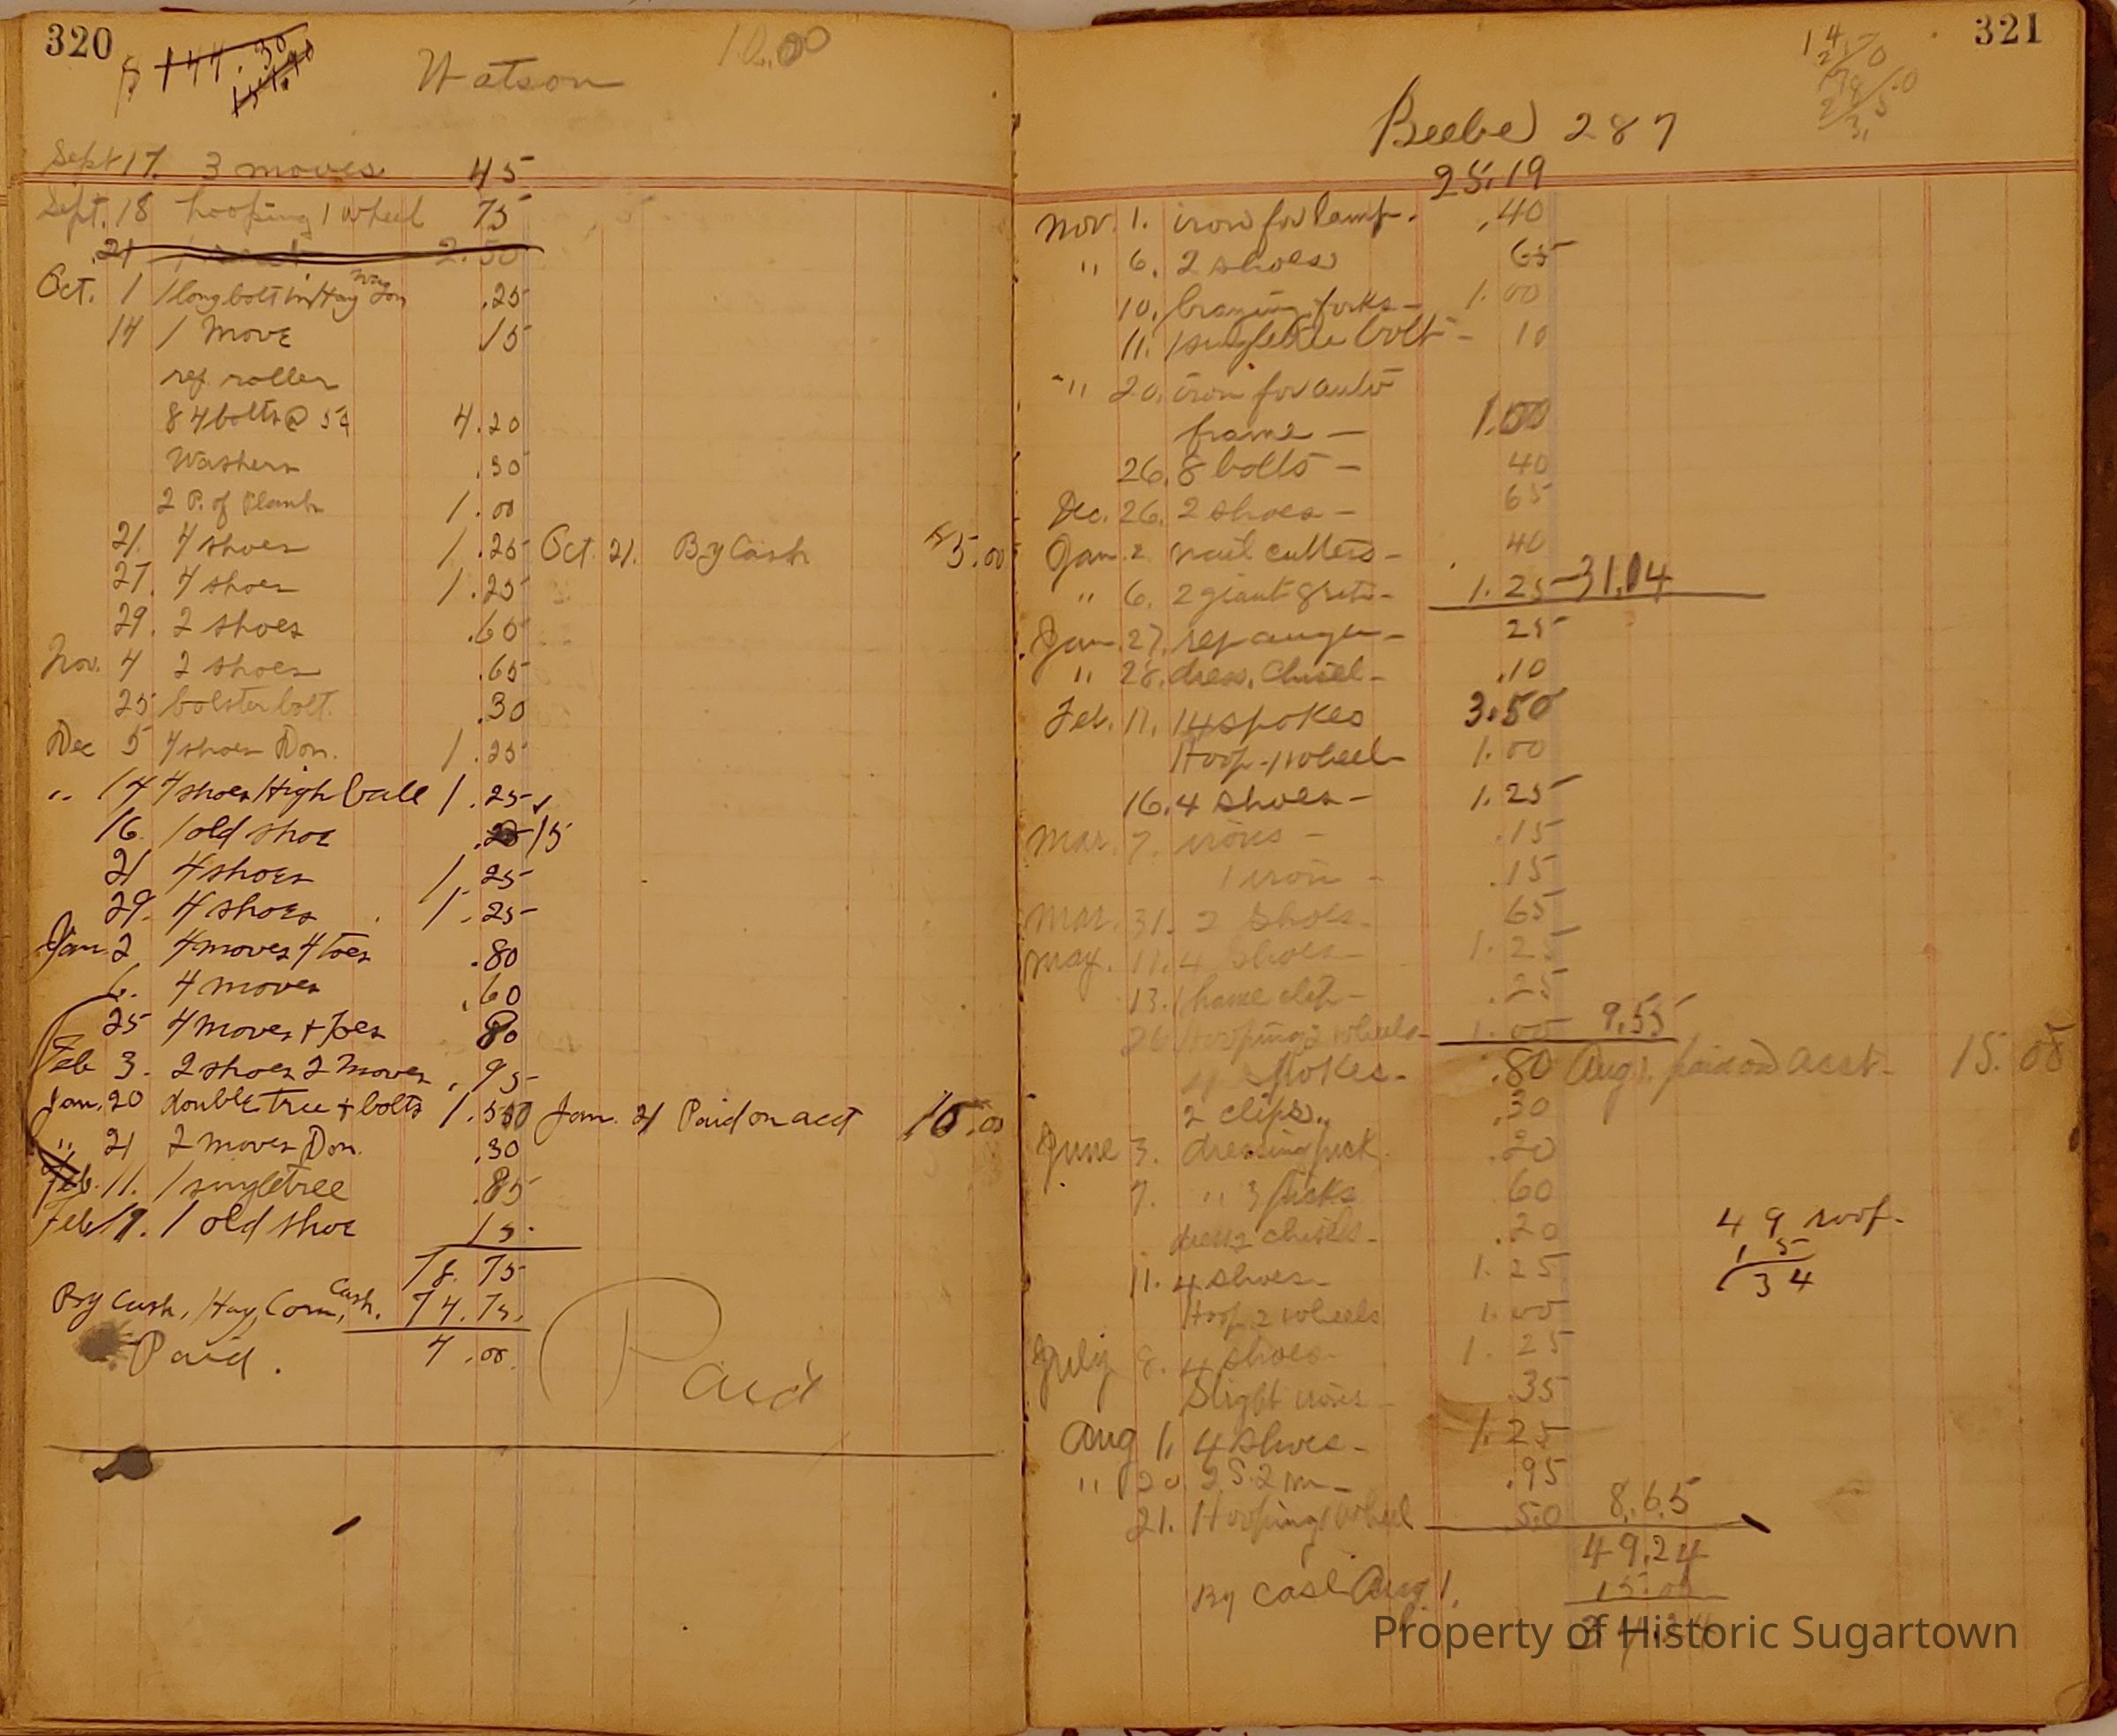 320
$ 144.30
Watson
10.00
Sept 17. 3 moves 45
Sept. 18 hooping 1 wheel 75
21 2.50
Oct. 1 1 long bolt in Hay Wagon .25
14 1 Move 15
rep. roller
84 bolts @ 5¢ 4.20
Washers .30
2 P. of Planks 1.00
21. 4 shoes 1.25 Oct. 21. By Cash $5.00
27. 4 shoes 1.25
29. 2 shoes .65
Nov. 4 2 shoes .65
25 bolster bolt. .30
Dec 5 4 shoes Don. 1.25
" 14 4 shoes High ball 1.25 ✓
16. 1 old shoe 15
21 4 shoes 1.25
29. 4 shoes 1.25
Jan. 2 4 moves 4 toes .80
6. 4 moves .60
25 4 moves + toes 80
Feb 3. 2 shoes 2 moves .95
Jan. 20 doubletree + bolts 1.50 Jan. 21 Paid on acct 10.00
" 21 2 moves Don. .30
Feb. 11. 1 singletree .85
Feb 19. 1 old shoe 15.
78.75
By Cash, Hay, Corn, Cash. 74.75.
Paid. 4.00.
Paid
321
Beebe 287
25.19
Nov. 1. iron for lamp. .40
" 6. 2 shoes 65
10. brazing forks - 1.00
11. 1 singletree bolt - 10
" 20. iron for auto
frame - 1.00
26. 8 bolts - 40
Dec. 26. 2 shoes - 65
Jan. 2. nail cutters - 40
" 6. 2 giant grets - 1.25 - 31.04
Jan. 27. rep auger - 25
" 28. dress. chisel - .10
Feb. 11. 14 spokes 3.50
Hoop - 1 wheel - 1.00
16. 4 shoes - 1.25
Mar. 7. irons - .15
1 iron - .15
Mar. 31. 2 shoes - 65
May. 11. 4 shoes - 1.25
13. 1 hame clip - .25
26 Hooping 2 wheels - 1.00 9.55
4 spokes - .80 Aug 1. paid on acct - 15.00
2 clips .30
June 3. dressing pick .20
7. " 3 picks 60
dress 2 chisels - .20
49 roof.
15
34
11. 4 shoes - 1.25
Hoop 2 wheels 1.00
July 8. 4 shoes - 1.25
Slight irons - .35
Aug 1, 4 shoes - 1.25
" 20. 2 S. 2 m - .95
21. Hooping 1 wheel 50 8.65
49.24
By Cash Aug 1. 15.00
34.24
Property of Historic Sugartown